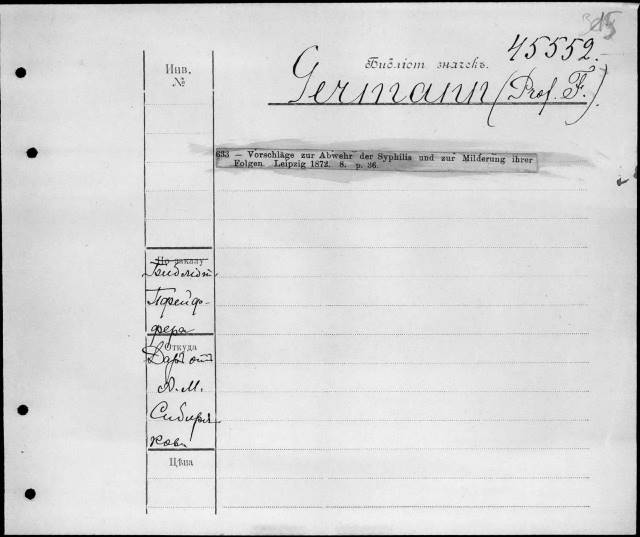 315
45552.
Инв.
№
Библіот. значекъ.
Germann (Prof. F.)
633 — Vorschläge zur Abwehr der Syphilis und zur Milderung ihrer
Folgen. Leipzig 1872. 8. p. 36.
По заказу
Библіот.
Пфейф-
фера
Откуда
Даръ отъ
А. М.
Сибиря-
кова
Цѣна